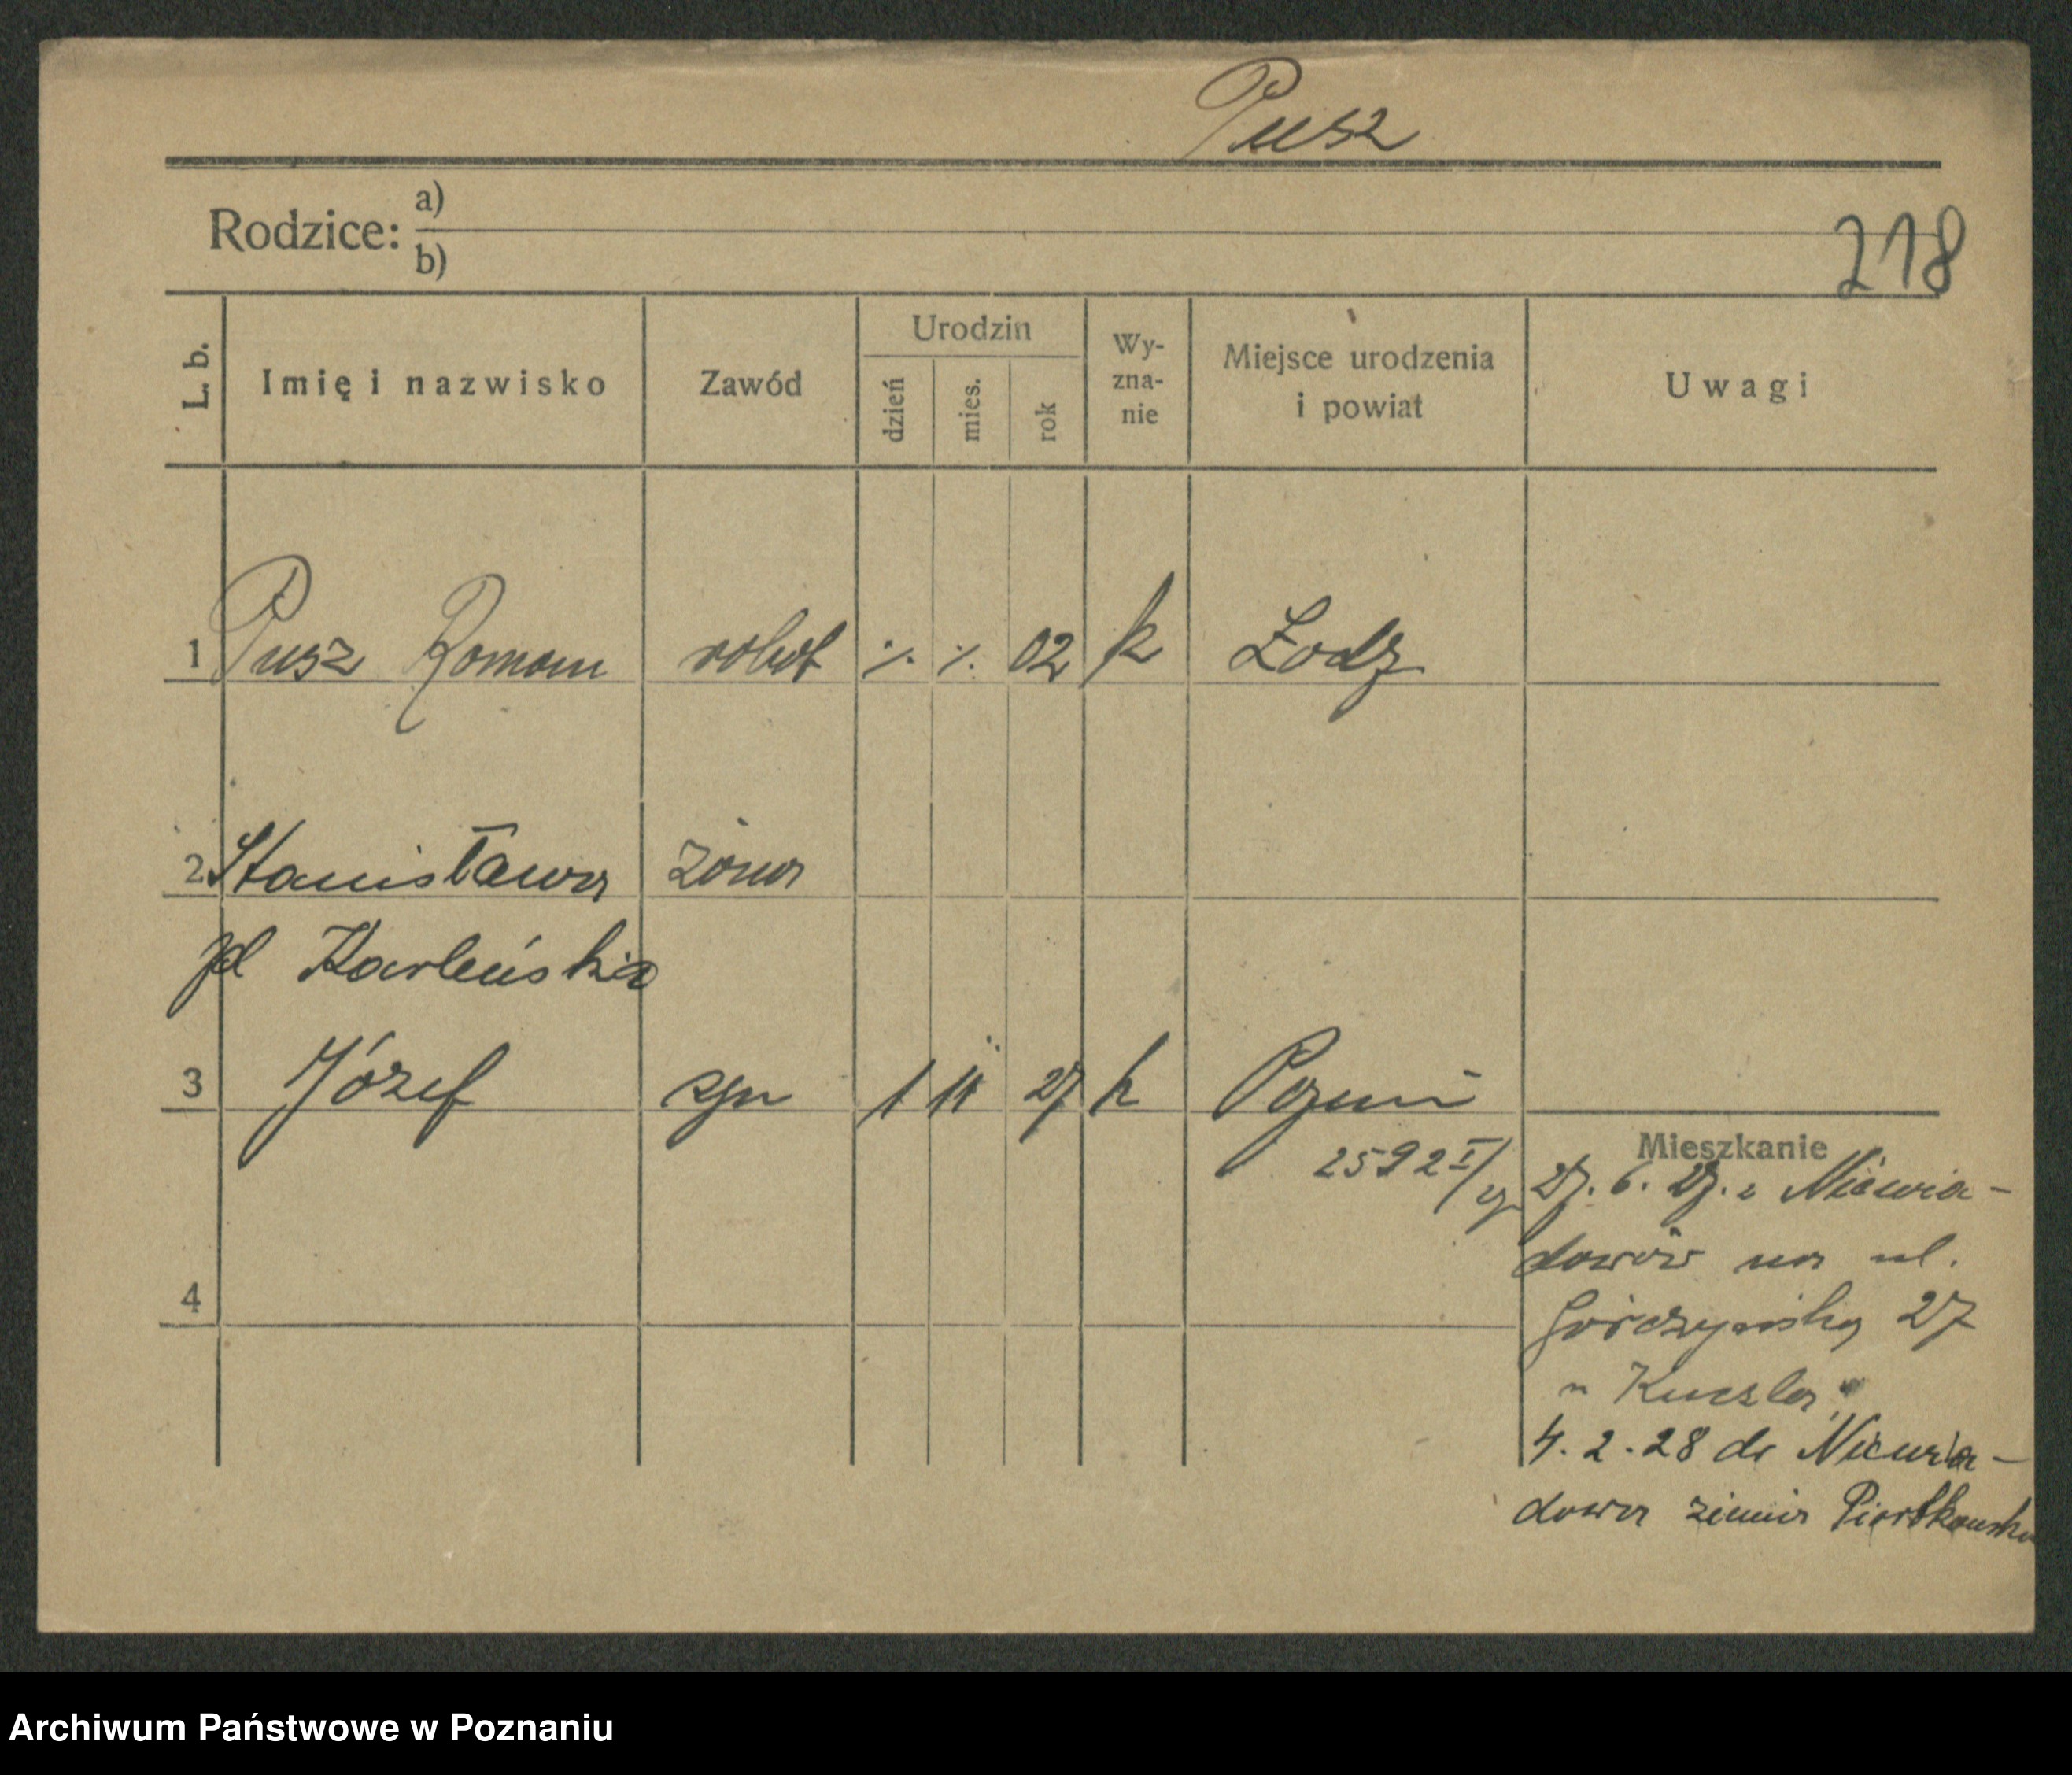 Pusz
Rodzice: a)
b)
218
L. b. Imię i nazwisko Zawód Urodzin dzień mies. rok Wy-zna-nie Miejsce urodzenia i powiat Uwagi
1 Pusz Roman robot ·/. ·/. 02 k Łodz
2 Stanisława żona
Karleńska
3 Józef syn 1 11 27 k Poznań
2592 I/
4
Mieszkanie
27. 6. 27. z Niewia-
dowów na ul.
Górczyńską 27
4. 2. 28 do Niewia-
dowa ziemia Piotrkowska
Archiwum Państwowe w Poznaniu